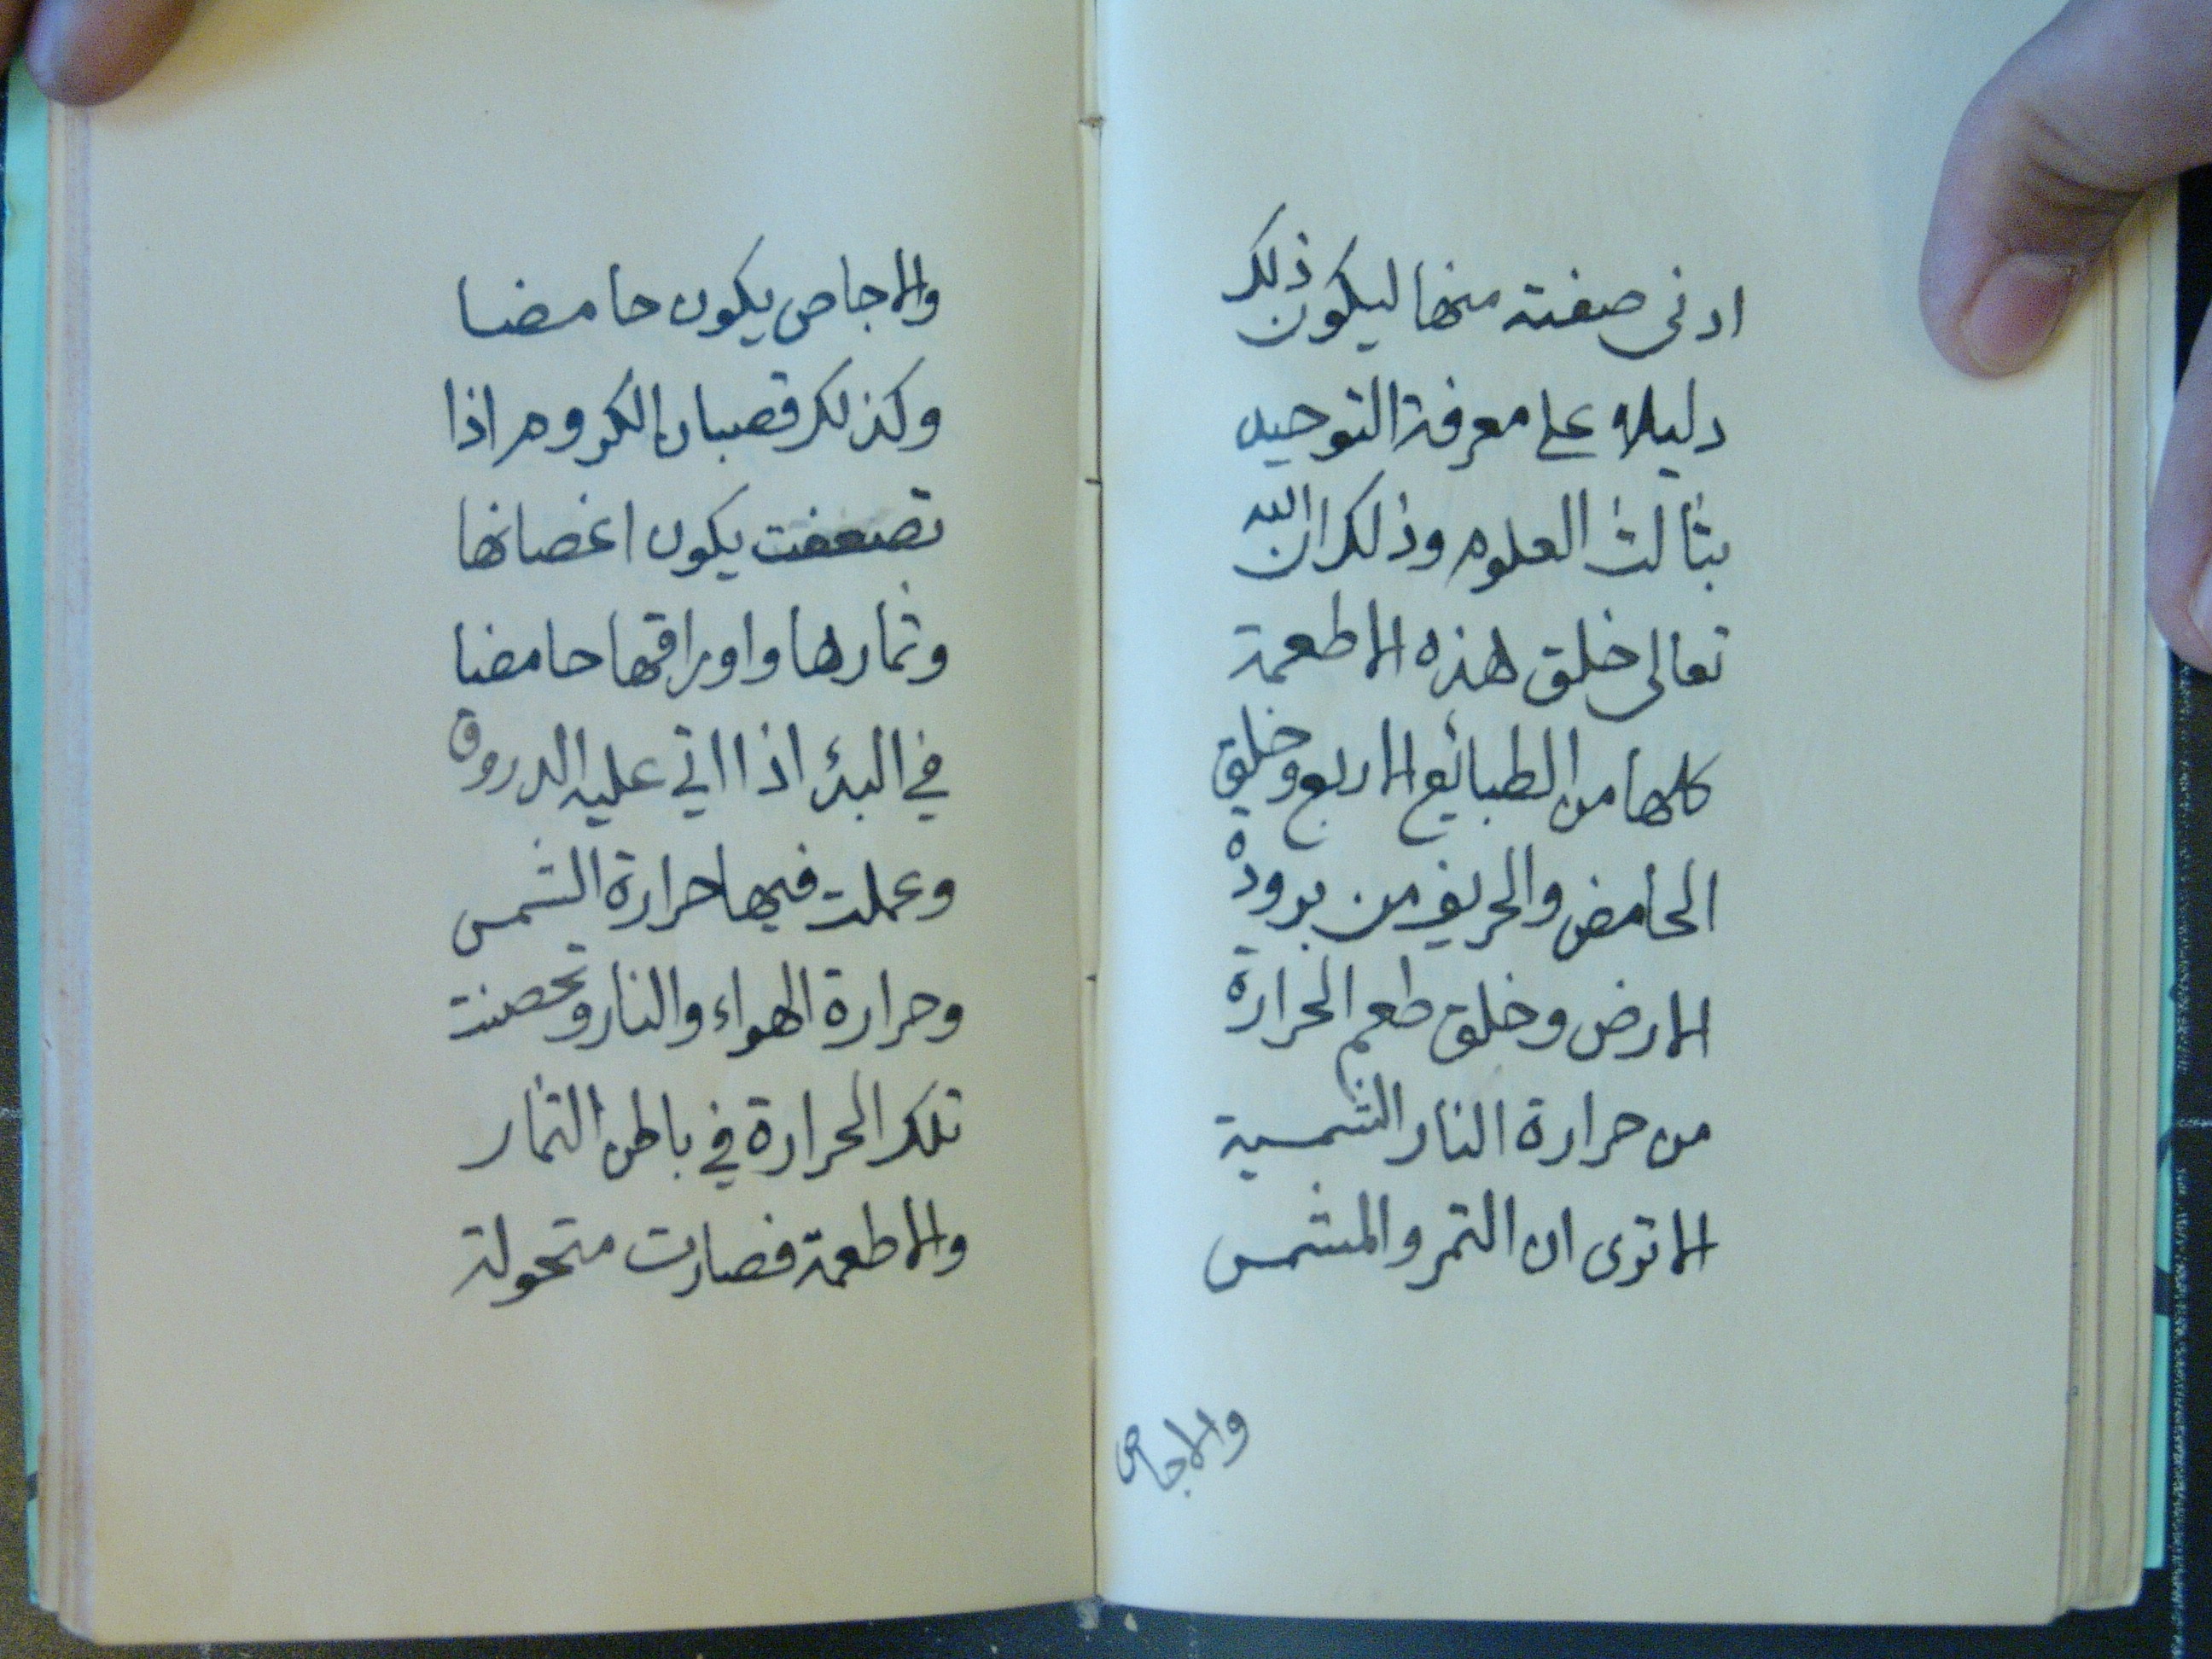 ادنى صفته منها ليكون ذلك
دليلا على معرفة التوحيد
بثالث العلوم وذلك ان الله
تعالى خلق هذه الاطعمة
كلها من الطبائع الاربع وخلق
الحامض والحريف من برودة
الارض وخلق طعم الحرارة
من حرارة النار الشمسية
الا ترى ان التمر والمشمس
والاجاص
والاجاص يكون حامضا
وكذلك قصبان الكروم اذا
تصعفت يكون اغصانها
وثمارها واوراقها حامضا
في البدئ اذا اتي عليه الدروق
وعملت فيها حرارة الشمس
وحرارة الهواء والنار وتحصنت
تلك الحرارة في باطن الثمار
والاطعمة فصارت متحولة